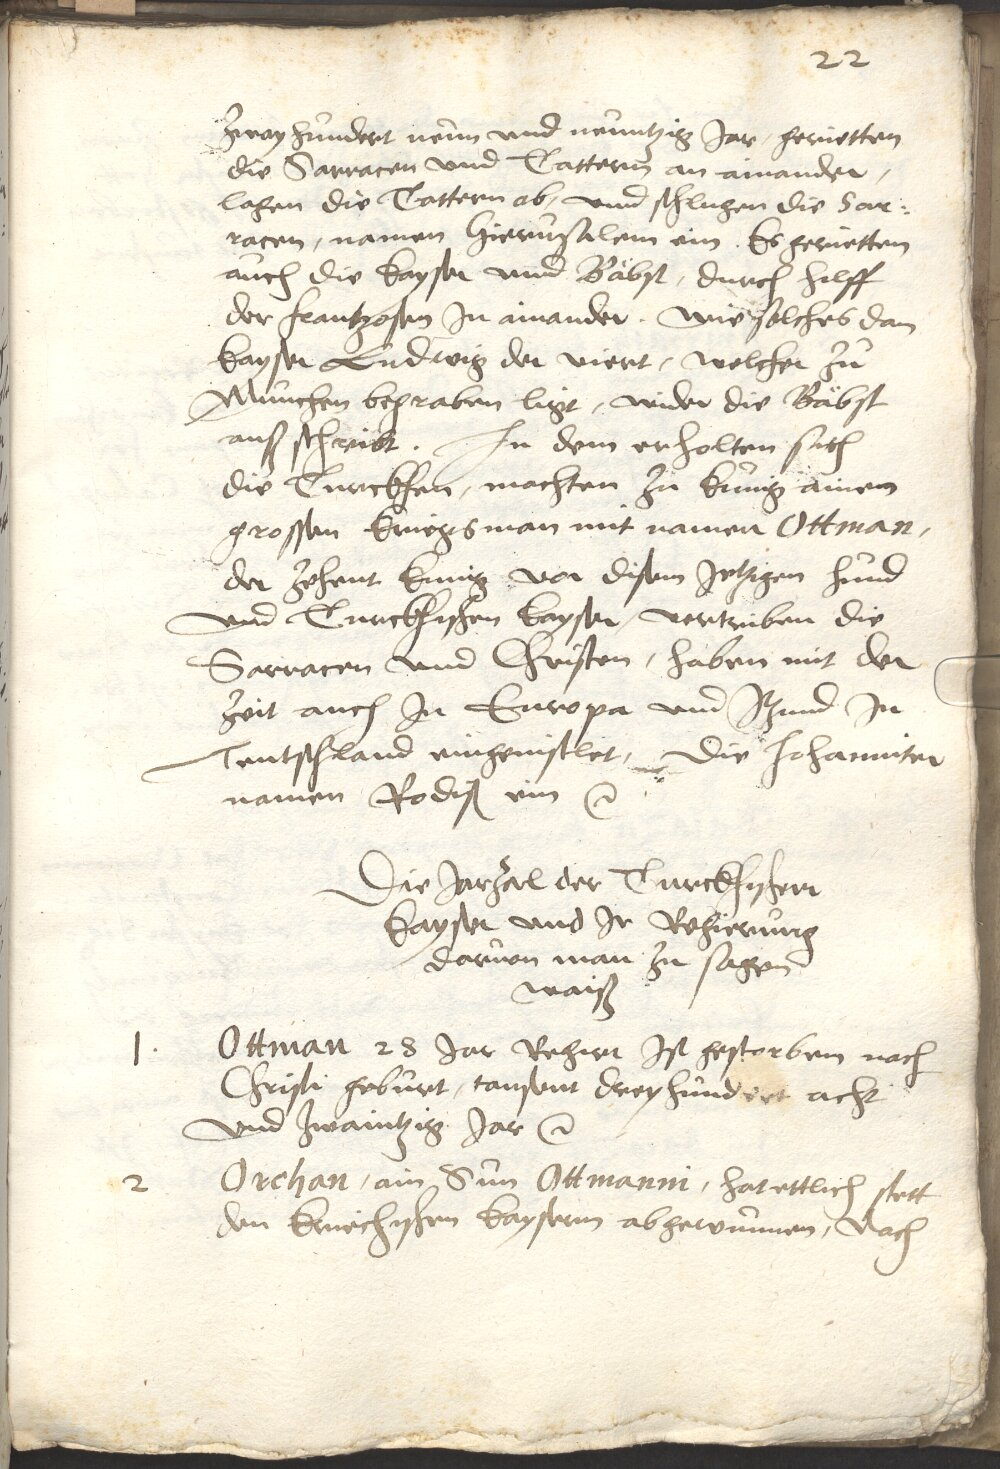 22
zway hundert neun und neuntzig Jar, gerietten
die Sarracen und Tattern an ainander,
lagen die Tattern ob, unnd schlugen die Sar-
racen, namen Hierusalem ein. Es gerietten
auch die kayser unnd Bäbst, durch hilff
der frantzosen In ainander. wie solches dan
kayser Ludwig der viert, welcher zu
Munchen begraben ligt, wider die Bäbst
auß schreibt. In dem erholten sich
die Turckhen, machten zu kunig ainem
grossen kriegsman mit namen Ottman,
der zehent kunig vor disem Jetzigen hund
und Turckhischen kayser, vertriben die
Sarracen und Christen, haben mit der
zeit auch In Europa und In
Teutschland eingenistlet, Die Johanniter
namen Rodiß ein
Die Jarzal der Turckhischen
kayser und Ir Regierung
darvon man zu sagen
waiß
1. Ottman 28 Jar Regirt Ist gestorben nach
Christi geburt, tausent dreyhundert acht
und zwaintzig Jar
2 Orchan, ain Sun Ottmanni, hat ettlich stett
den kriechischen kaysern abgewunnen, Nach